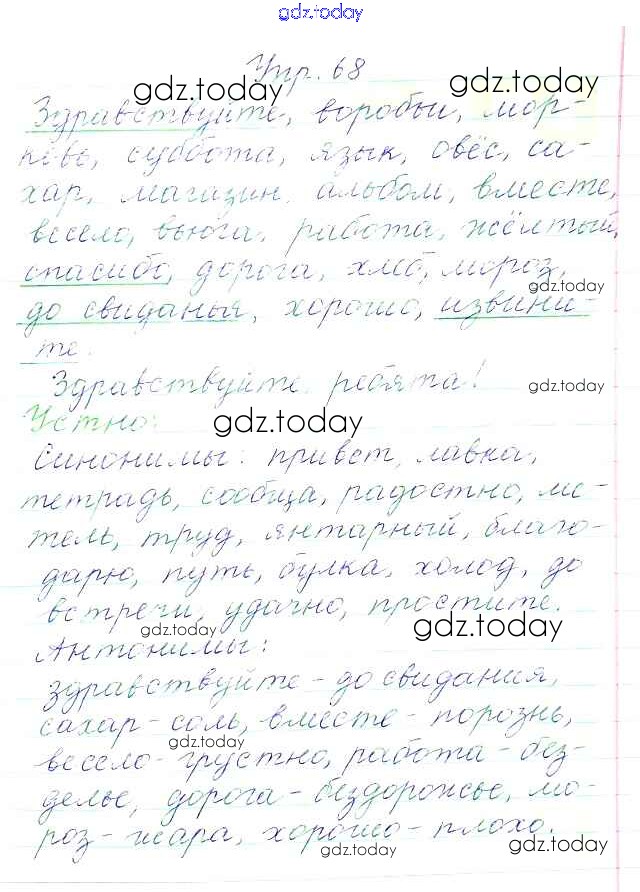 gdz.today
Упр. 68
gdz.today gdz.today
Здравствуйте, воробьи, мор-
ковь, суббота, язык, овёс, са-
хар, магазин, альбом, вместе,
весело, вьюга, работа, жёлтый,
спасибо, дорога, хлеб, мороз,
gdz.today
до свиданья, хорошо, извини-
те.
Здравствуйте, ребята!
gdz.today
Устно:
gdz.today
Синонимы: привет, лавка,
тетрадь, сообща, радостно, ме-
тель, труд, янтарный, благо-
дарю, путь, булка, холод, до
встречи, удачно, простите.
gdz.today gdz.today
Антонимы:
здравствуйте - до свидания,
сахар - соль, вместе - порознь,
gdz.today
весело - грустно, работа - без-
делье, дорога - бездорожье, мо-
роз - жара, хорошо - плохо.
gdz.today gdz.today